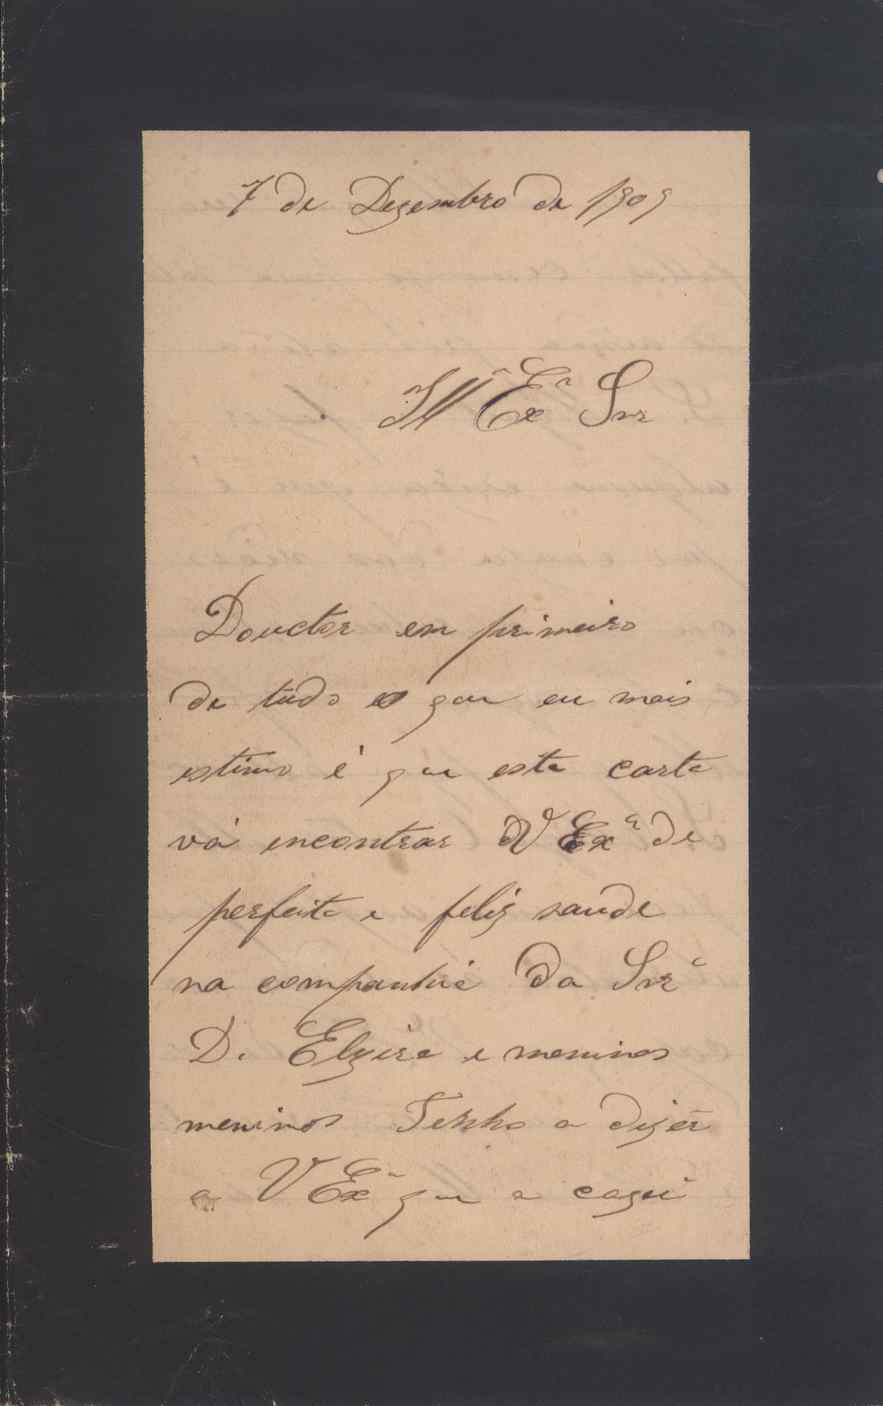 7 de Dezembro de 1909
Ill Exª Snr
Douctor em primeiro
de tudo o que eu mais
estimo é que esta carta
vá encontrar V Exª de
perfeita e feliz saude
na companhia da Snrª
D. Elzira e meninos
meninos Tenho a dizer
a V Exª que a